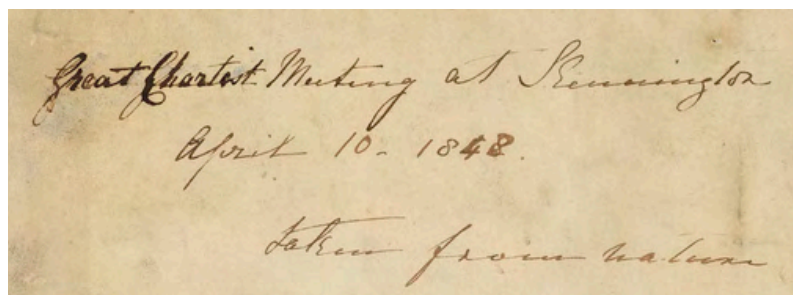 Great Chartist Meeting at Kennington
April 10 - 1848.
taken from nature